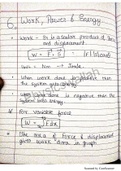 6. Work, Power & Energy.
• Work - It is a scalar product of force
and displacement
W = F . S
Unit = Nm → Joule
• When work done is positive that
the system gets energy.
• When work done is negative then the
system loses energy.
• For variable force
W = ∫Fdx
• The area of force & displacement
gives work done in graph